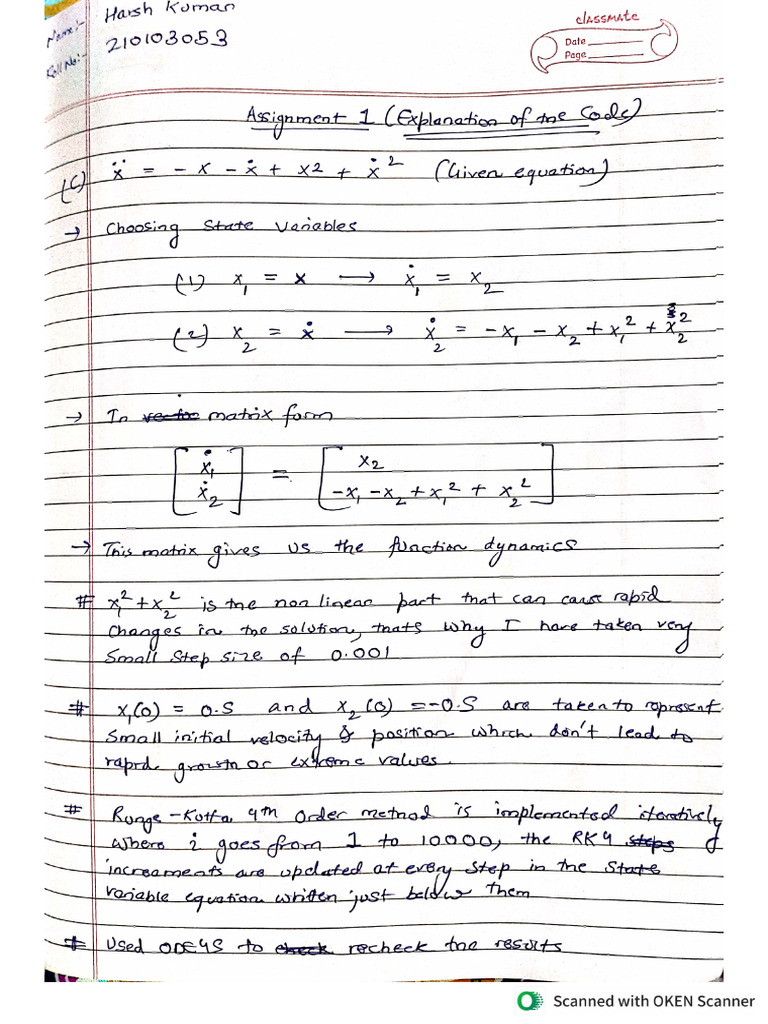 Name:- Harsh Kumar
Roll No:- 210103053
classmate
Date
Page
Assignment 1 (Explanation of the Code)
(C) ẍ = - x - ẋ + x2 + ẋ² (Given equation)
→ Choosing State Variables
(1) x₁ = x → ẋ₁ = x₂
(2) x₂ = ẋ → ẋ₂ = -x₁ - x₂ + x₁² + x₂²
→ In matrix form
[ẋ₁ ẋ₂] = [x₂ -x₁-x₂+x₁² + x₂²]
→ This matrix gives us the function dynamics
# x₁²+x₂² is the non linear part that can cause rapid
changes in the solution, thats why I have taken very
small step size of 0.001
# x₁(0) = 0.5 and x₂(0) = -0.5 are taken to represent
small initial velocity & position which don't lead to
rapid growth or extreme values.
# Runge-Kutta 4th Order method is implemented iteratively
where i goes from 1 to 10000, the RK4 steps
increaments are updated at every step in the State
variable equation written just below them
# Used ODE45 to check recheck the results
Scanned with OKEN Scanner